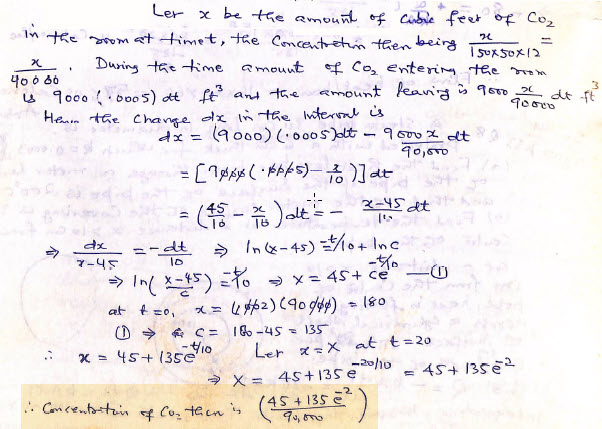 Let x be the amount of cubic feet of CO₂
in the room at time t, the Concentration then being x/150×50×12 =
x/40000. During the time amount of CO₂ entering the room
is 9000 (.0005) dt ft³ and the amount leaving is 9000 x/90000 dt ft³
Hence the change dx in the interval is
dx = (9000) (.0005)dt - 9000x/90,000 dt
= [9000(.0005) - x/10)] dt
= (45/10 - x/10) dt = - x-45/10 dt
⇒ dx/x-45 = -dt/10 ⇒ ln(x-45) = -t/10 + ln c
⇒ ln(x-45/c) = -t/10 ⇒ x = 45 + ce^-t/10 —①
at t=0, x = (.002)(90000) = 180
① ⇒ C = 180-45 = 135
∴ x = 45 + 135e^-t/10 Let x=X at t=20
⇒ X = 45 + 135 e^-20/10 = 45 + 135 e^-2
∴ Concentration of CO₂ then is (45 + 135 e^-2/90,000)